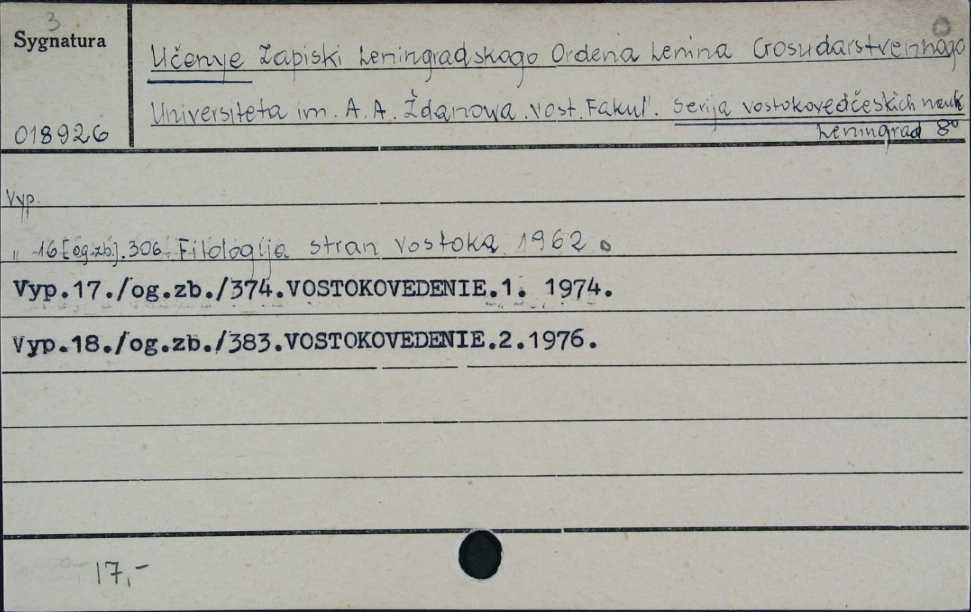 3
Sygnatura
Učenye Zapiski Leningradskogo Ordena Lenina Gosudarstvennogo
Universiteta im. A. A. Ždanowa. Vost. Fakul'. Serija vostokovedčeskich nauk
018926
Leningrad 8°
Vyp.
" 16[og.zb.].306. Filologija stran vostoka 1962
Vyp.17./og.zb./374.VOSTOKOVEDENIE.1. 1974.
Vyp.18./og.zb./383.VOSTOKOVEDENIE.2.1976.
17,-